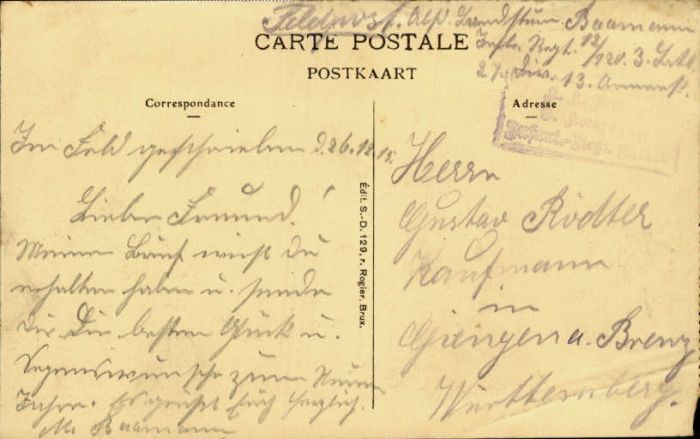 Feldpost. Abs. Landsturm. Baamann
Inftr. Regt. 12/120. 3. Batl.
27. Div. 13. Armeek.
CARTE POSTALE
POSTKAART
Correspondance
Adresse
Im Feld geschrieben d. 26.12.15.
Lieber Freund!
Meinen Brief wirst du
erhalten haben u. sende
dir die besten Glück u.
Segenswünsche zum Neuen
Jahre. Es grüßt Euch herzlich.
M. Baamann
Édit. S.-D. 129, r. Rogier, Brux.
Herrn
Gustav Rödter
Kaufmann
in
Giengen a. Brenz
Württemberg.